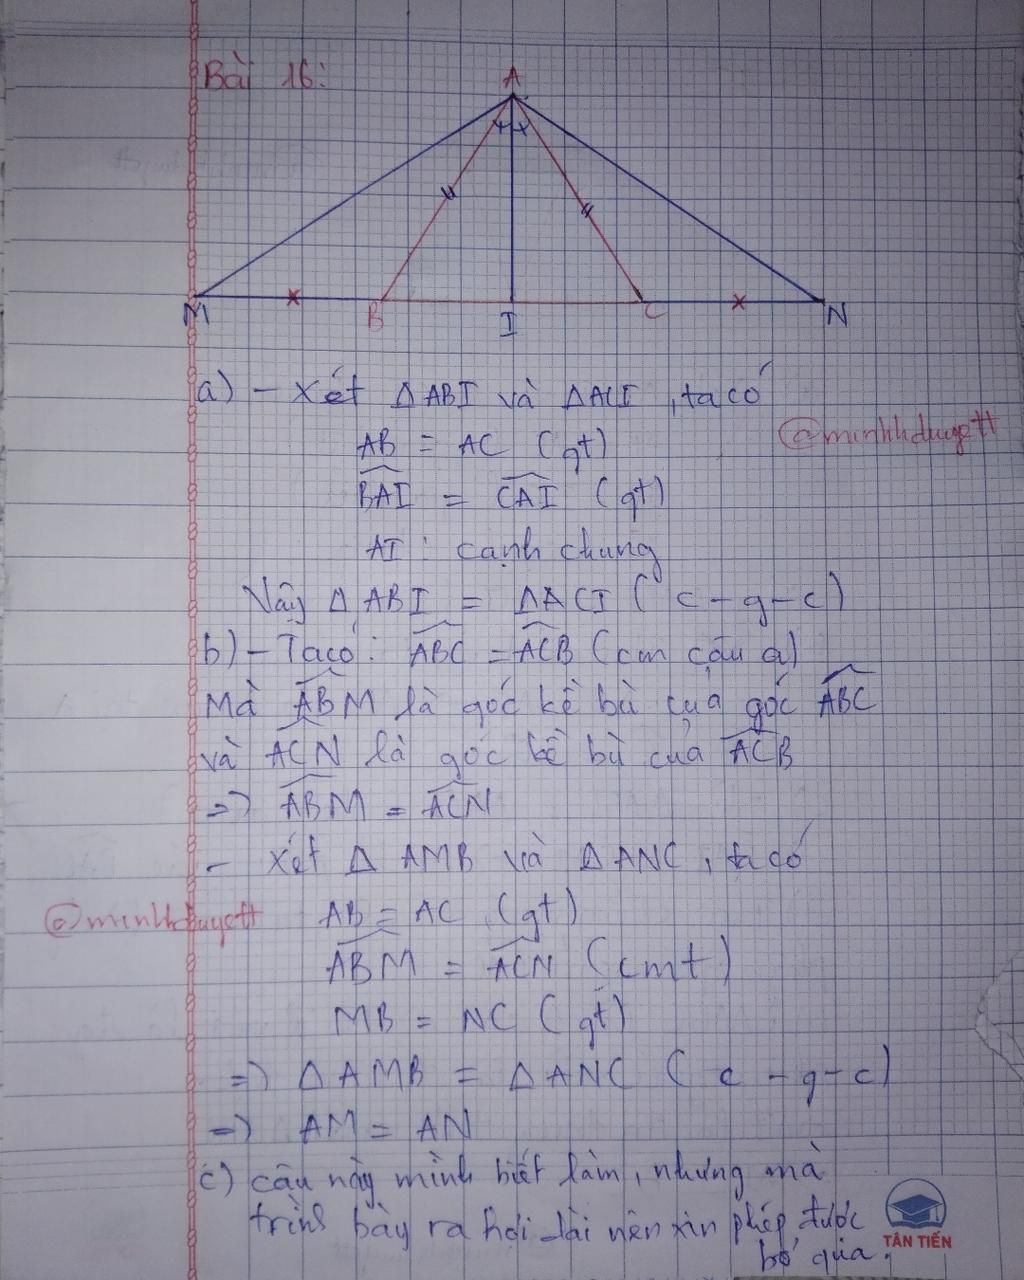 Bài 16:
A
M B I C N
a) - Xét Δ ABI và ΔACI, ta có
@minhhduyett
AB = AC (gt)
BAI = CAI (gt)
AI : cạnh chung
Vậy Δ ABI = ΔACI (c-g-c)
b) - Ta có: ABC = ACB (cm câu a)
Mà ABM là góc kề bù của góc ABC
và ACN là góc kề bù của ACB
=> ABM = ACN
- Xét Δ AMB và Δ ANC, ta có
@minhhduyett
AB = AC (gt)
ABM = ACN (cmt)
MB = NC (gt)
=> Δ AMB = Δ ANC (c-g-c)
=> AM = AN
c) câu này mình biết làm, nhưng mà
trình bày ra hơi dài nên xin phép được
bỏ qua.
TÂN TIẾN